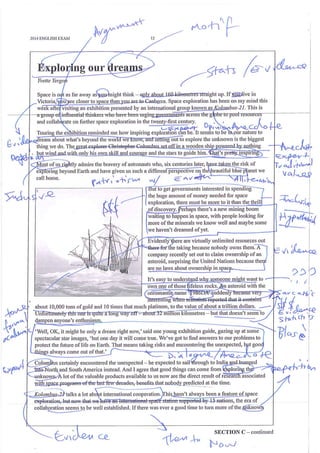 Argument
Motif
2014 ENGLISH EXAM 12
Exploring our dreams
Yvette Yergon
Stats / Evidence
Space is not as far away as you might think – only about 100 kilometres straight up. If you live in
Victoria, you are closer to space than you are to Canberra. Space exploration has been on my mind this
week after visiting an exhibition presented by an international group known as Kolumbus-21. This is
a group of influential thinkers who have been urging governments across the globe to pool resources
and collaborate on further space exploration in the twenty-first century.
Touring the exhibition reminded me how inspiring exploration can be. It seems to be in our nature to
dream about what's beyond the world we know, and setting out to explore the unknown is the biggest
thing we do. The great explorer Christopher Columbus set off in a wooden ship powered by nothing
but wind and with only his own skill and courage and the stars to guide him. That's pretty inspiring.
Most of us rightly admire the bravery of astronauts who, six centuries later, have taken the risk of
exploring beyond Earth and have given us such a different perspective on the beautiful blue planet we
call home.
Anecdote
expert
Traditional
values
Evidence
Inclusive
But to get governments interested in spending
the huge amount of money needed for space
exploration, there must be more to it than the thrill
of discovery. Perhaps there's a new mining boom
waiting to happen in space, with people looking for
more of the minerals we know well and maybe some
we haven't dreamed of yet.
Evidently there are virtually unlimited resources out
there for the taking because nobody owns them. A
company recently set out to claim ownership of an
asteroid, surprising the United Nations because there
are no laws about ownership in space.
Evidence
It's easy to understand why someone might want to
own one of those lifeless rocks. An asteroid with the
interesting when scientists reported that it contains
about 10,000 tons of gold and 10 times that much platinum, to the value of about a trillion dollars.
Unfortunately this one is quite a long way off – about 32 million kilometres – but that doesn't seem to
dampen anyone's enthusiasm.
'Well, OK, it might be only a dream right now,' said one young exhibition guide, gazing up at some
spectacular star images, 'but one day it will come true. We've got to find answers to our problems to
protect the future of life on Earth. That means taking risks and encountering the unexpected, but good
things always come out of that.'
Dialogue / Anecdote
Columbus certainly encountered the unexpected – he expected to sail through to India and bumped
into North and South America instead. And I agree that good things can come from exploring the
unknown. A lot of the valuable products available to us now are the direct result of research associated
with space programs of the last few decades, benefits that nobody predicted at the time.
Repetition
Kolumbus-21 talks a lot about international cooperation. This hasn't always been a feature of space
exploration, but now that we have an international space station supported by 15 nations, the era of
collaboration seems to be well established. If there was ever a good time to turn more of the unknown
SECTION C – continued
Evidence
Then to
Now